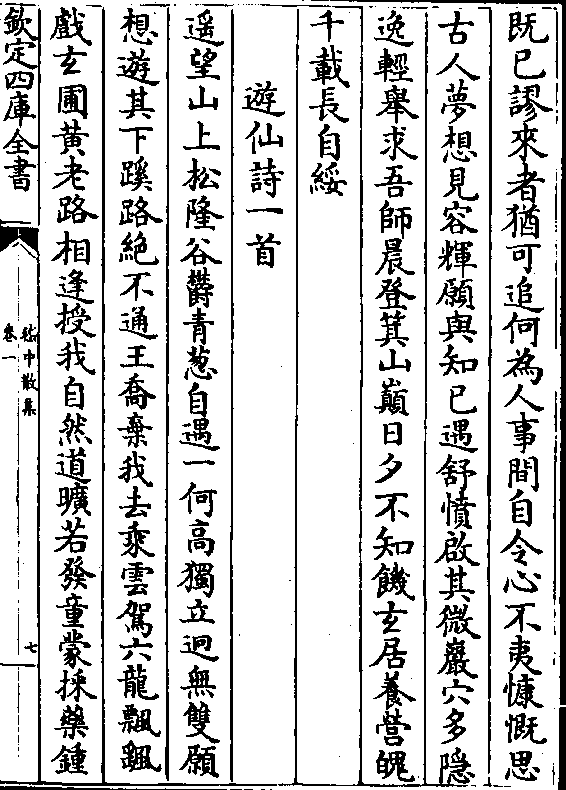 既已謬來者猶可追何為人事間自令心不夷慷慨思
古人夢想見容輝願與知已遇舒憤啟其微巖穴多隱
逸輕舉求吾師晨登箕山巔日夕不知饑玄居養營魄
千載長自綏
遊仙詩一首
遥望山上松隆谷欝青葱自遇一何高獨立迥無雙願
想遊其下蹊路絶不通王喬棄我去乗雲駕六龍飄飖
戲玄圃黄老路相逢授我自然道曠若發童蒙採藥鍾
欽定四庫全書
嵇中散集
卷一
七